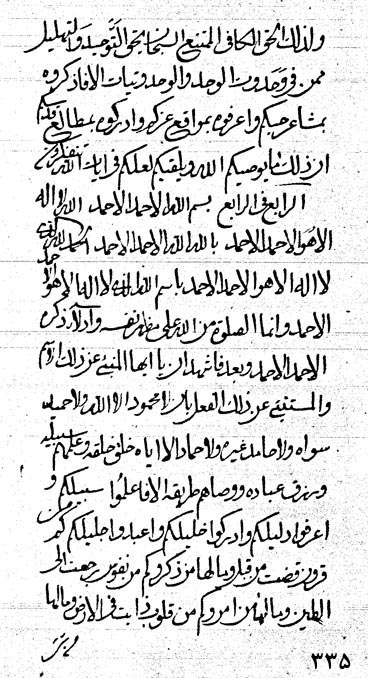 ولذلك الحق الكافي الممتنع بحق التوحيد والتهليل
ممن في وحدوت الوحد والوحدوتيات الا فاذكروه
بمشاعر حبكم واعرفوه بمواقع عزكم وادركوه بمطالع قدسكم
ان ذلك ما يوصيكم الله ويلقيكم لعلكم في ايات الله تتفكرون
الرابع في الرابع بسم الله الاحمد الاحمد الله لا اله
الا هو الاحمد الاحمد بالله الله الاحمد الاحمد الحمد لله الذي
لا اله الا هو الاحمد الاحمد باسم الله الذي لا اله الا هو
الاحمد وانما الصلوة من الله على مظهر نفسه وادلاء ذكره
الاحمد الاحمد وبعد فاشهد ان يا ايها المنبئ عن ذلك الاسم
والمستنبئ عن ذلك الفعل بان لا محمود الا الله ولا احمد
سواه ولا حامد غيره ولا حماد الا اياه خلق خلقه وعلمهم سبيله
ورزق عباده ووصاهم طريقه الا فاعلوا سبيلكم و
اعرفوا دليلكم وادركوا خليلكم واعبدوا جليلكم كم من
قرون قضت من قبل وما لها من ذكر وكم من نفوس رجعت الى
الطين وما لها من امر وكم من قلوب ذابت في الارض وما لها
٣٣٥